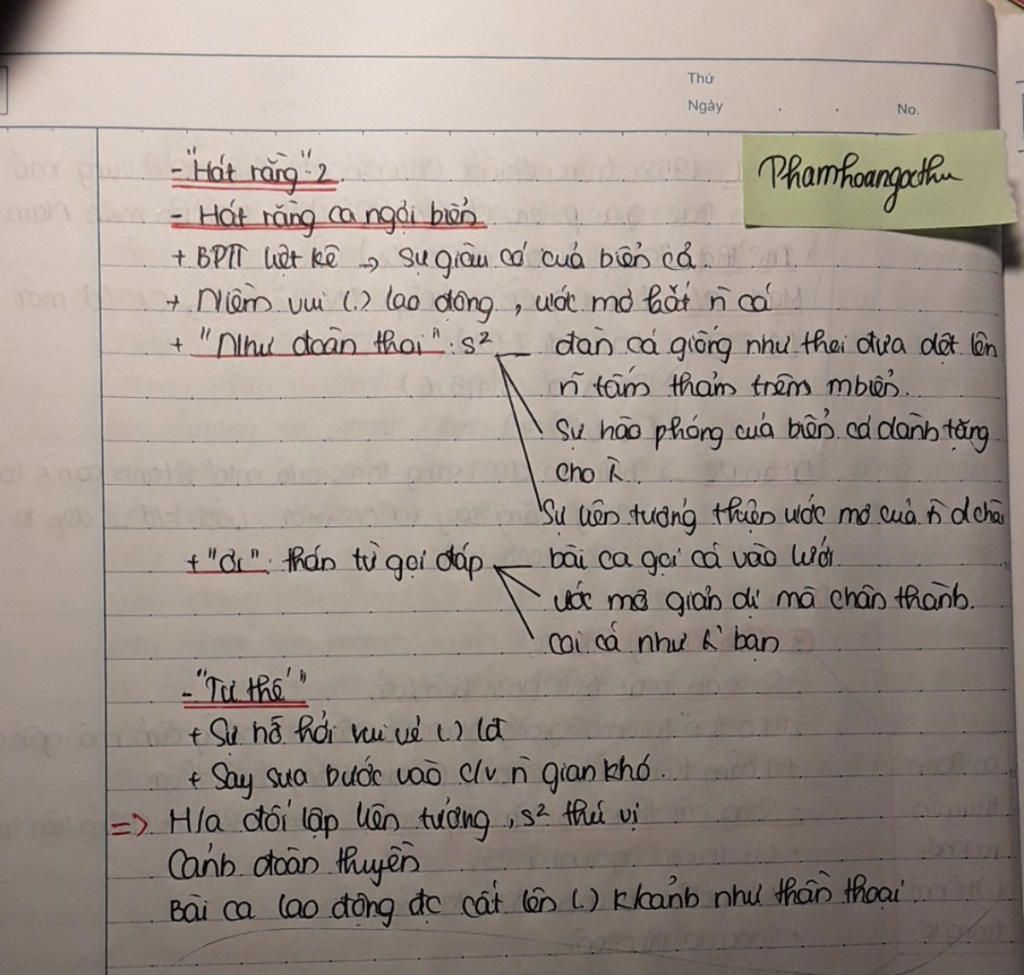 Thứ
Ngày . . No.
Phamhoangocthu
- "Hát rằng" 2
- Hát rằng ca ngợi biển
+ BPTT liệt kê → sự giàu có của biển cả.
+ Niềm vui (.) lao động, ước mơ bắt n̄ cá
+ "Như đoàn thoi": s² — đàn cá giống như thoi đưa dệt lên
n̄ tấm thảm trên mbiển.
Sự hào phóng của biển cả dành tặng
cho
Sự liên tưởng thiện ước mơ của n̄ d chài
+ "ơi": thán từ gọi đáp — bài ca gọi cá vào lưới
ước mơ giản dị mà chân thành.
coi cá như bạn
- "Tư thế"
+ Sự hồ hởi vui vẻ (.) lđ
+ Say sưa bước vào c/v n̄ gian khó.
=> H/a đối lập liên tưởng, s² thú vị
Cảnh đoàn thuyền
Bài ca lao động đc cất lên (.) k cảnh như thần thoại